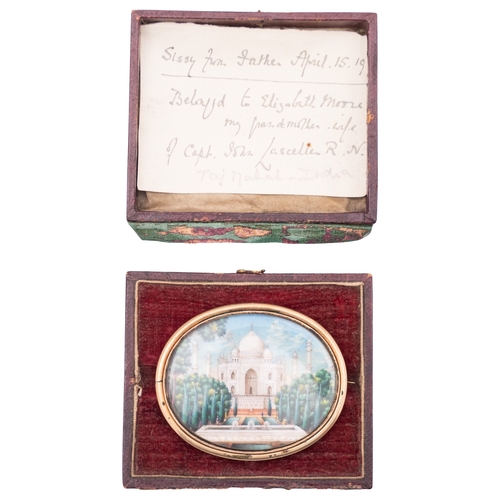 Sissy from Father April. 15. 19
Belonged to Elizabeth Moore
my grandmother. wife
of Capt. John Lascelles R. N.
Taj Mahal - India